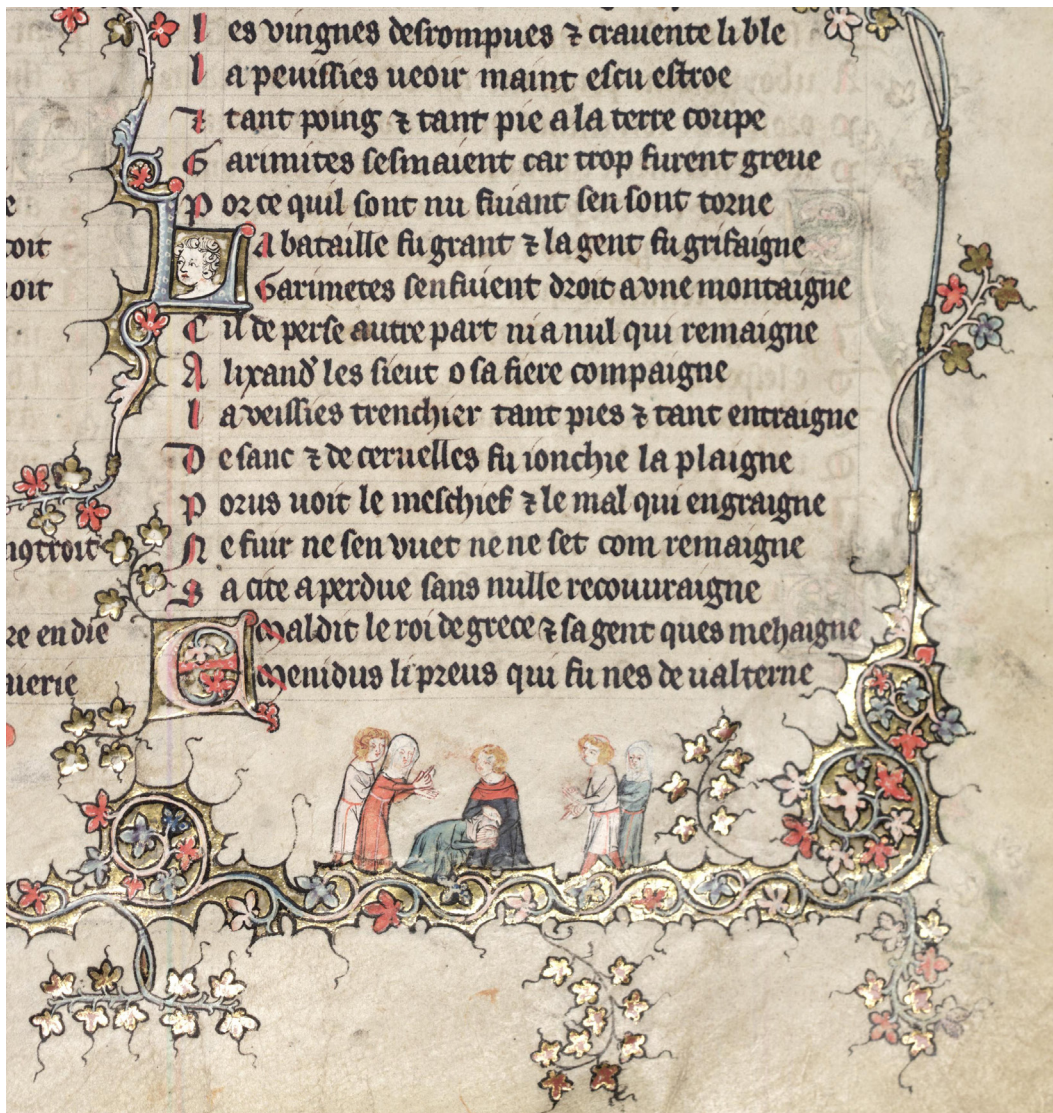 es vingnes desrompues ⁊ crauente li ble
l a peuissies ueoir maint escu estroe
⁊ tant poing ⁊ tant pie a la terre coupe
G arimites sesmaient car trop furent greue
P or ce quil sont nu fuiant sen sont torne
L a bataille fu grant ⁊ la gent fu grifaigne
Garimetes senfuient droit a vne montaigne
C il de perse autre part ni a nul qui remaigne
A lixand' les sieut o sa fiere compaigne
l a veissies trenchier tant pies ⁊ tant entraigne
D e sanc ⁊ de ceruelles fu ionchie la plaigne
P orus uoit le meschief ⁊ le mal qui engraigne
N e fuir ne sen vuet ne ne set com remaigne
S a cite a perdue sans nulle recouuraigne
maldit le roi de grece ⁊ sa gent ques mehaigne
E menidus li preus qui fu nes de ualterne
e
toit
oit
troit
re en die
uerie